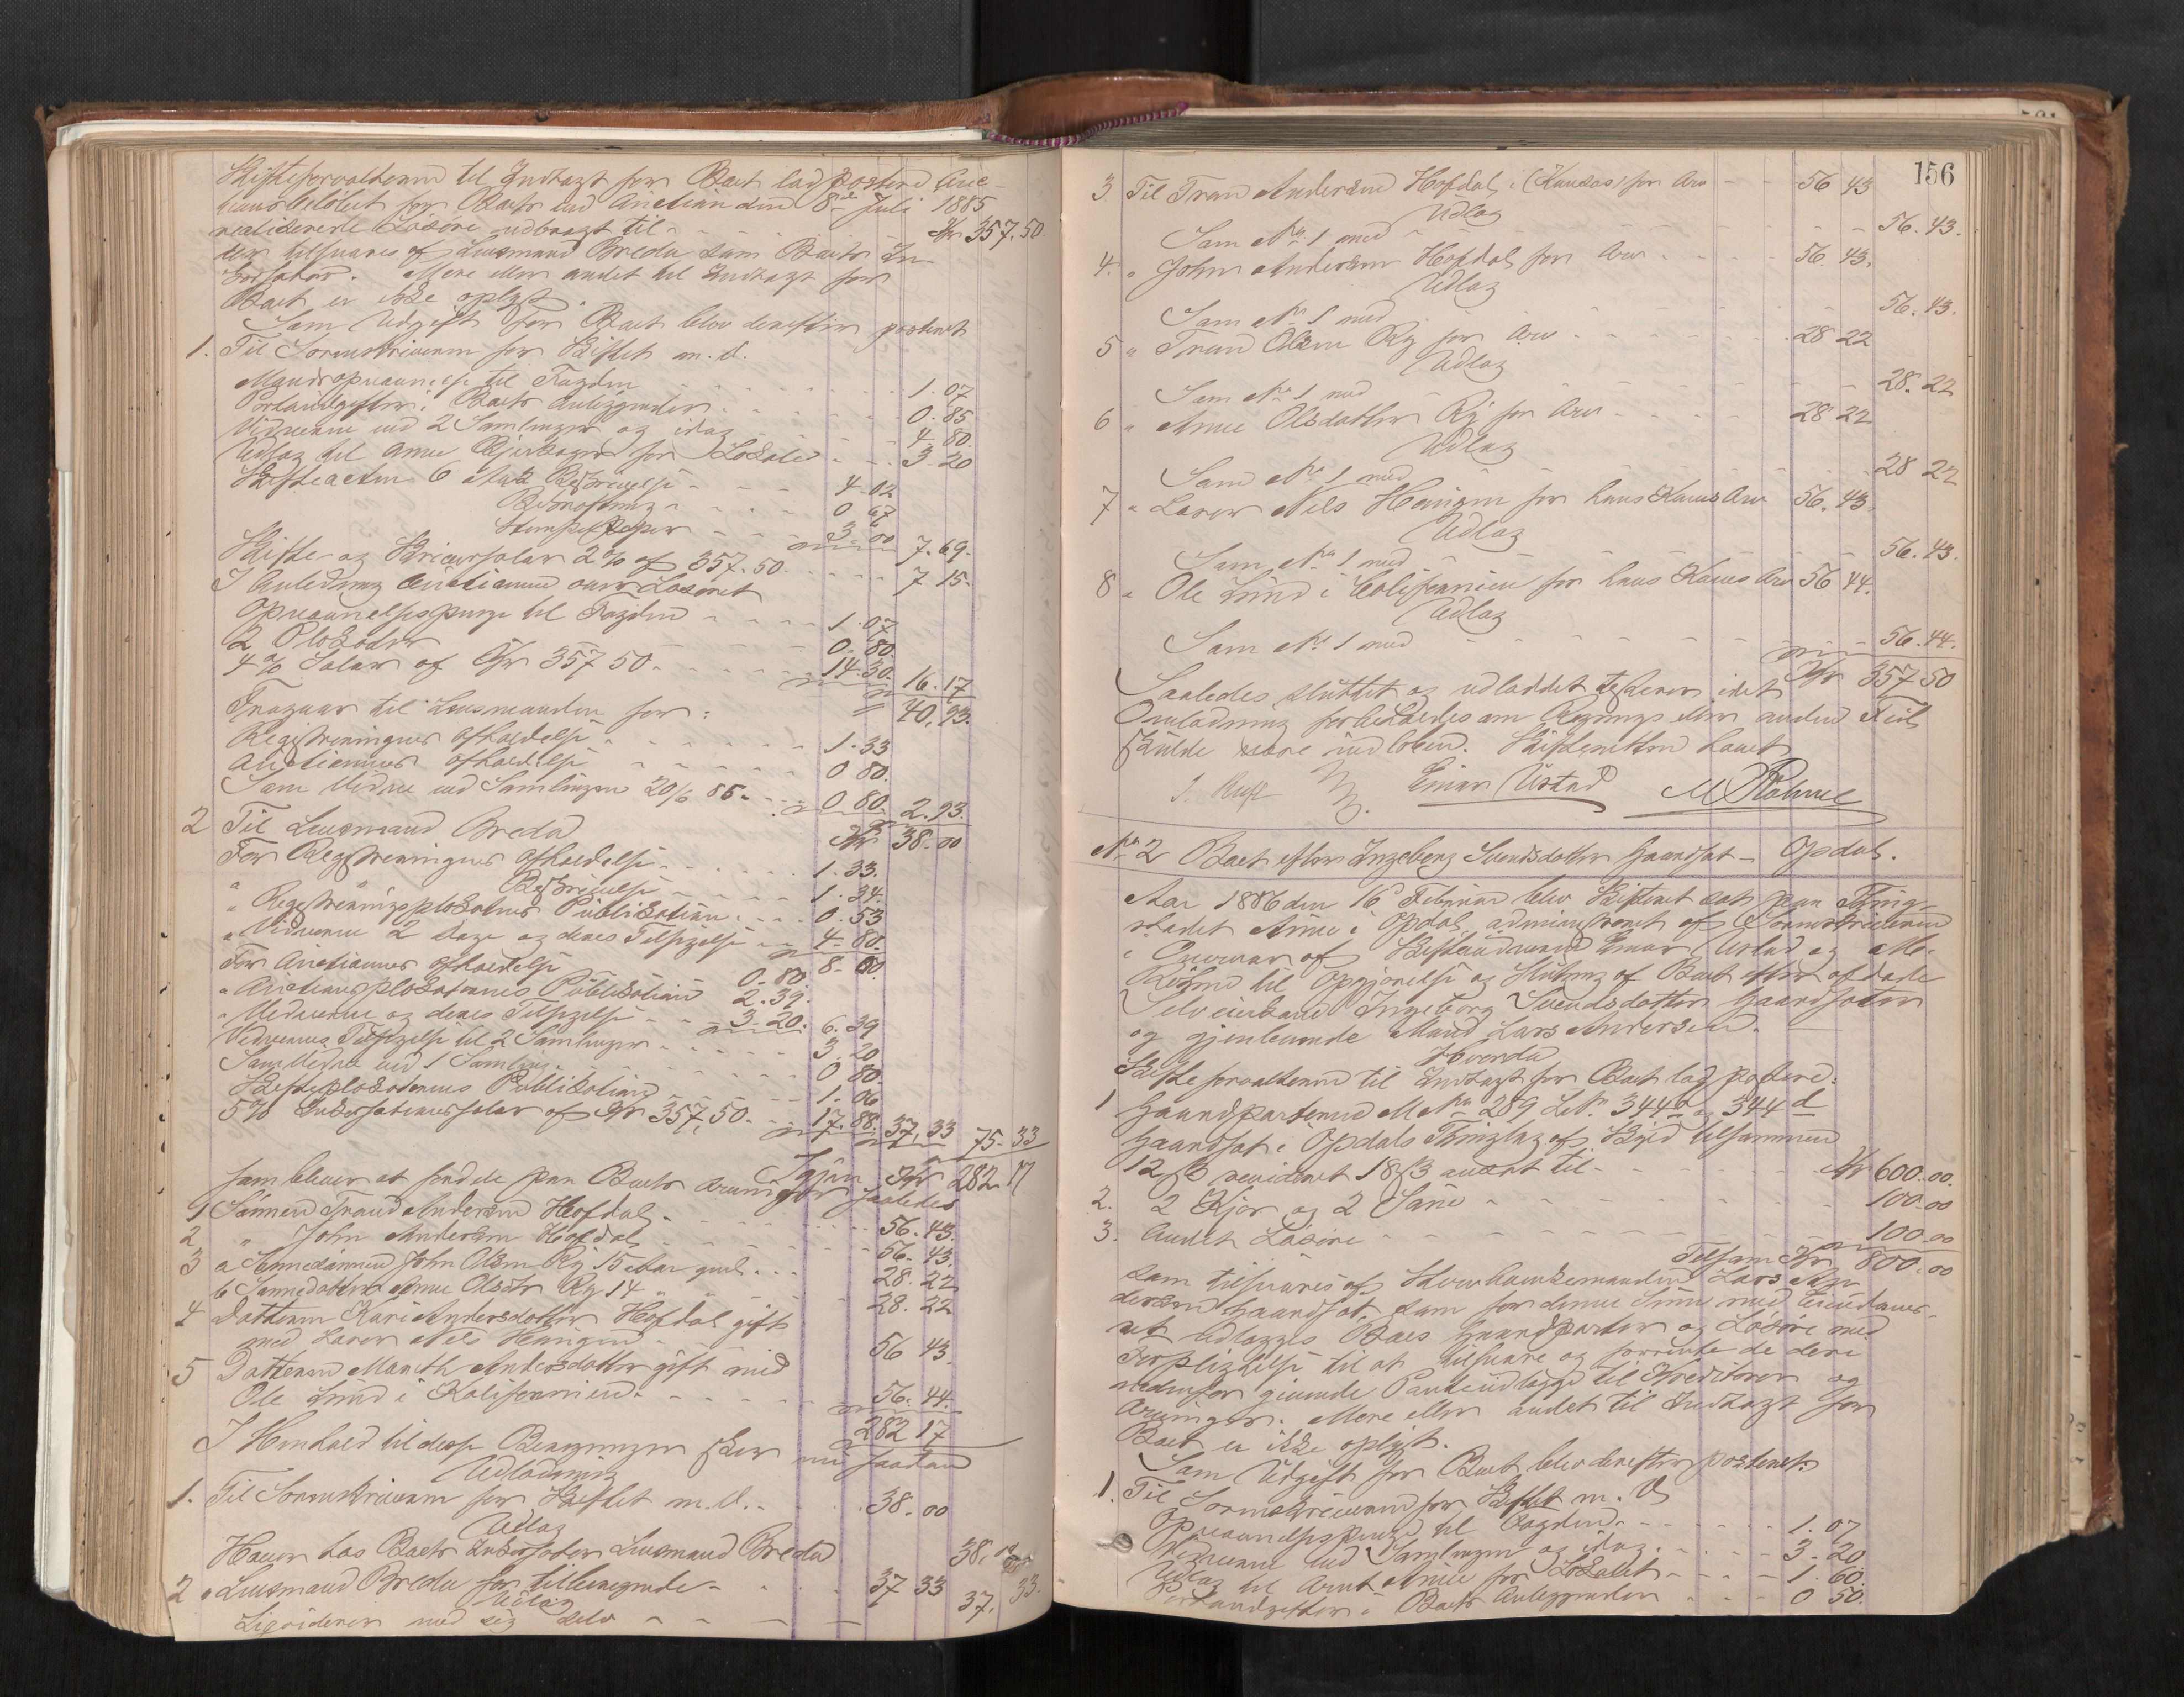 Skifteforvalteren til Indtægt for Boet lod postere Auc-
tionsbeløbet for Boets ved Auction den 8de Juli 1885
realiserede Løsøre udbragt til - - - Kr 357.50
der tilsvares af Lensmand Breda som Boets In-
cassator. Mere eller andet til Indtægt for
Boet er ikke oplyst.
Som Udgift for Boet blev derefter posteret
1. Til Sorenskriveren for Skiftet m. v.
til Fogden - - - 1.07
Portoudgifter i Boets Anliggender - - - 0.85
Vidnerne ved 2 Samlinger og idag - - - 4.80.
Udlæg til for Lokale - - - 3.20
Skifteacten 6 Ark Beskrivelse - - - 4.02
- - - 0.67
Stempletpapir - - - 3.00 7.69.
Skifte- og Skriversalær 2% af 357.50 - - - 7.15.
I Anledning Auctionen over Løsøret
til Fogden - - - 1.07
2 Plakater - - - 0.80.
4% Salær af Kr 357 50 - - - 14.30. 16.17
40.93.
Fragaar til Lensmanden for:
Registreringens Afholdelse - - - 1.33
Auctionens Afholdelse - - - 0 80.
Som Vidne ved Samlingen 20/6 85 - - - 0 80. 2.93.
Kr 38.00
2 Til Lensmand Breda
For Registreringens Afholdelse - - - 1.33.
Beskrivelse - - - 1.34.
" Registreringsplakatens Publikation - - - 0.53
" Vidnerne 2 Dage og deres Tilsigelse - - - 4.80.
8.00.
For Auctionens Afholdelse 0.80.
" Auctionsplakaternes Publikation 2.39.
" Vidnerne og deres Tilsigelse - - 3.20. 6.39
Vidnernes Tilsigelse til 2 Samlinger - - - 3.20
Som Vidne ved 1 Samling - - - 0 80.
Skifteplakatens Publikation - - - 1.06
5% Incassationssalær af Kr 357,50 - - - 17.88. 37,33 75.33
Igjen Kr 282.17
som bliver at fordele paa Boets Arvinger saaledes
1 Sønnen Trond Andersen Hofdal - - - 56.43.
2 " John Andersen Hofdal - - - 56.43.
3 a Sønnesønnen John Olsen Ry 15 aar gml. - - - 28.22
b Sønnedatteren Anne Olsdtr Ry 14 " - - - 28.22
4 Datteren Kari Andersdatter Hofdal gift
med Lærer Nils Haugen - - - 56 43.
5 Datteren Marith Andersdatter gift med
Ole Lund i Kalifornien - - - 56.44.
282 17
I Henhold til disse Beregninger skeer nu saadan
Udlodning
1. Til Sorenskriveren for Skiftet m. v. - - - 38.00
Udlæg
Haves hos Boets Incassator Lensmand Breda 38.00
2 " Lensmand Breda for tilkommende - - - 37 33
Udlæg
Liqviderer med sig selv - - - 37. 33.
156
3. Til Tron Andersen Hofdal (Kansas) for Arv - - 56 43
Udlæg
Som No 1 med - - - 56.43.
4. " John Andersen Hofdal for Arv - - - 56 43.
Udlæg
Som No 1 med - - - 56.43.
5 " Olsen Ry for Arv - - - 28 22
Udlæg
Som No 1 med - - - 28.22
6 " Anne Olsdatter Ry for Arv - - - 28 22
Udlæg
Som No 1 med - - - 28 22
7 " Lærer Nils Haugen for hans Kones Arv 56.43.
Udlæg
Som No 1 med - - - 56.43.
8 " Ole Lund i Californien for hans Kones Arv 56 44.
Udlæg
Som No 1 med - - - 56.44.
Kr 357 50
Saaledes sluttet og udloddet idet
Omlodning forbeholdes om Regnings eller anden Feil
skulde være indløben. Skifteretten hævet
Einar Ustad
No 2 Boet efter Ingeborg Svendsdatter Gaardsæt - Opdal.
Aar 1886 den 16 Februar blev Skifteret sat paa Thing-
stedet Aune i Opdal, administreret af Sorenskriveren
i Overvær af Skiftevidnerne Einar Ustad og M.
til Opgjørelse og Slutning af Boet efter afdøde
Selveierkone Ingeborg Svendsdatter Gaardsæter
og gjenlevende Mand Lars Andersen.
Hvorda
Skifteforvalteren til Indtægt for Boet lod postere:
1 Gaardparterne M No 289 L No 344 og 344 d
Gaardsæt i Opdals Thinglag af Skyld tilsammen
12 ß revideret 18 ß ansat til - - - Kr 600.00.
2. 2 Kjør og 2 - - - 100.00
3. Andet Løsøre - - - 100.00
Tilsam Kr 800.00
som tilsvares af Lars An-
dersen Gaardsæt, som for denne Sum med Eiendoms-
ret udlægges Boets Gaardparter og Løsøre med
Forpligtelse til at tilsvare og forrente de dem
nedenfor givende Panteudlæg til Kreditorer og
Arvinger. Mere eller andet til Indtægt for
Boet er ikke oplyst.
Som Udgift for Boet blev derefter posteret:
1. Til Sorenskriveren for Skiftet m. V
til Fogden - - - 1.07
Vidnerne ved Samlingen og idag - - - 3.20
Udlæg til Arnt Aune for Lokalet - - - 1.60.
Portoudgifter i Boets Anliggender - - - 0 50.